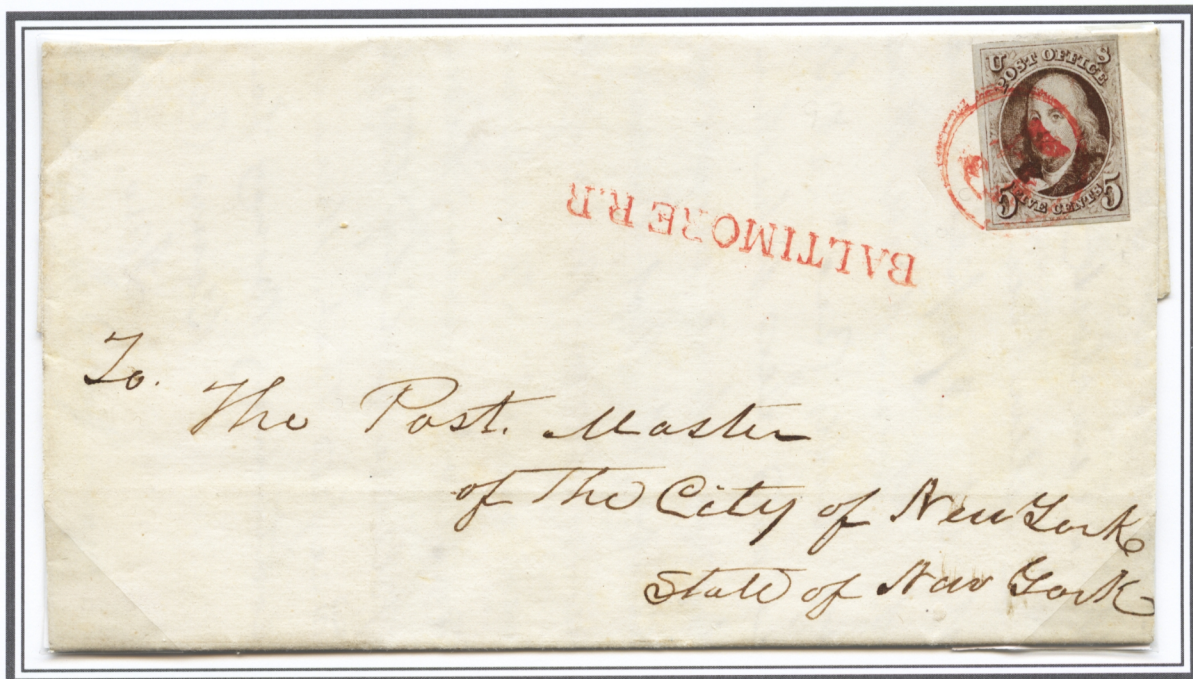 U S
POST OFFICE
5 FIVE CENTS 5
BALTIMORE R.R
To.
The Post. Master
of The City of New York
State of New York